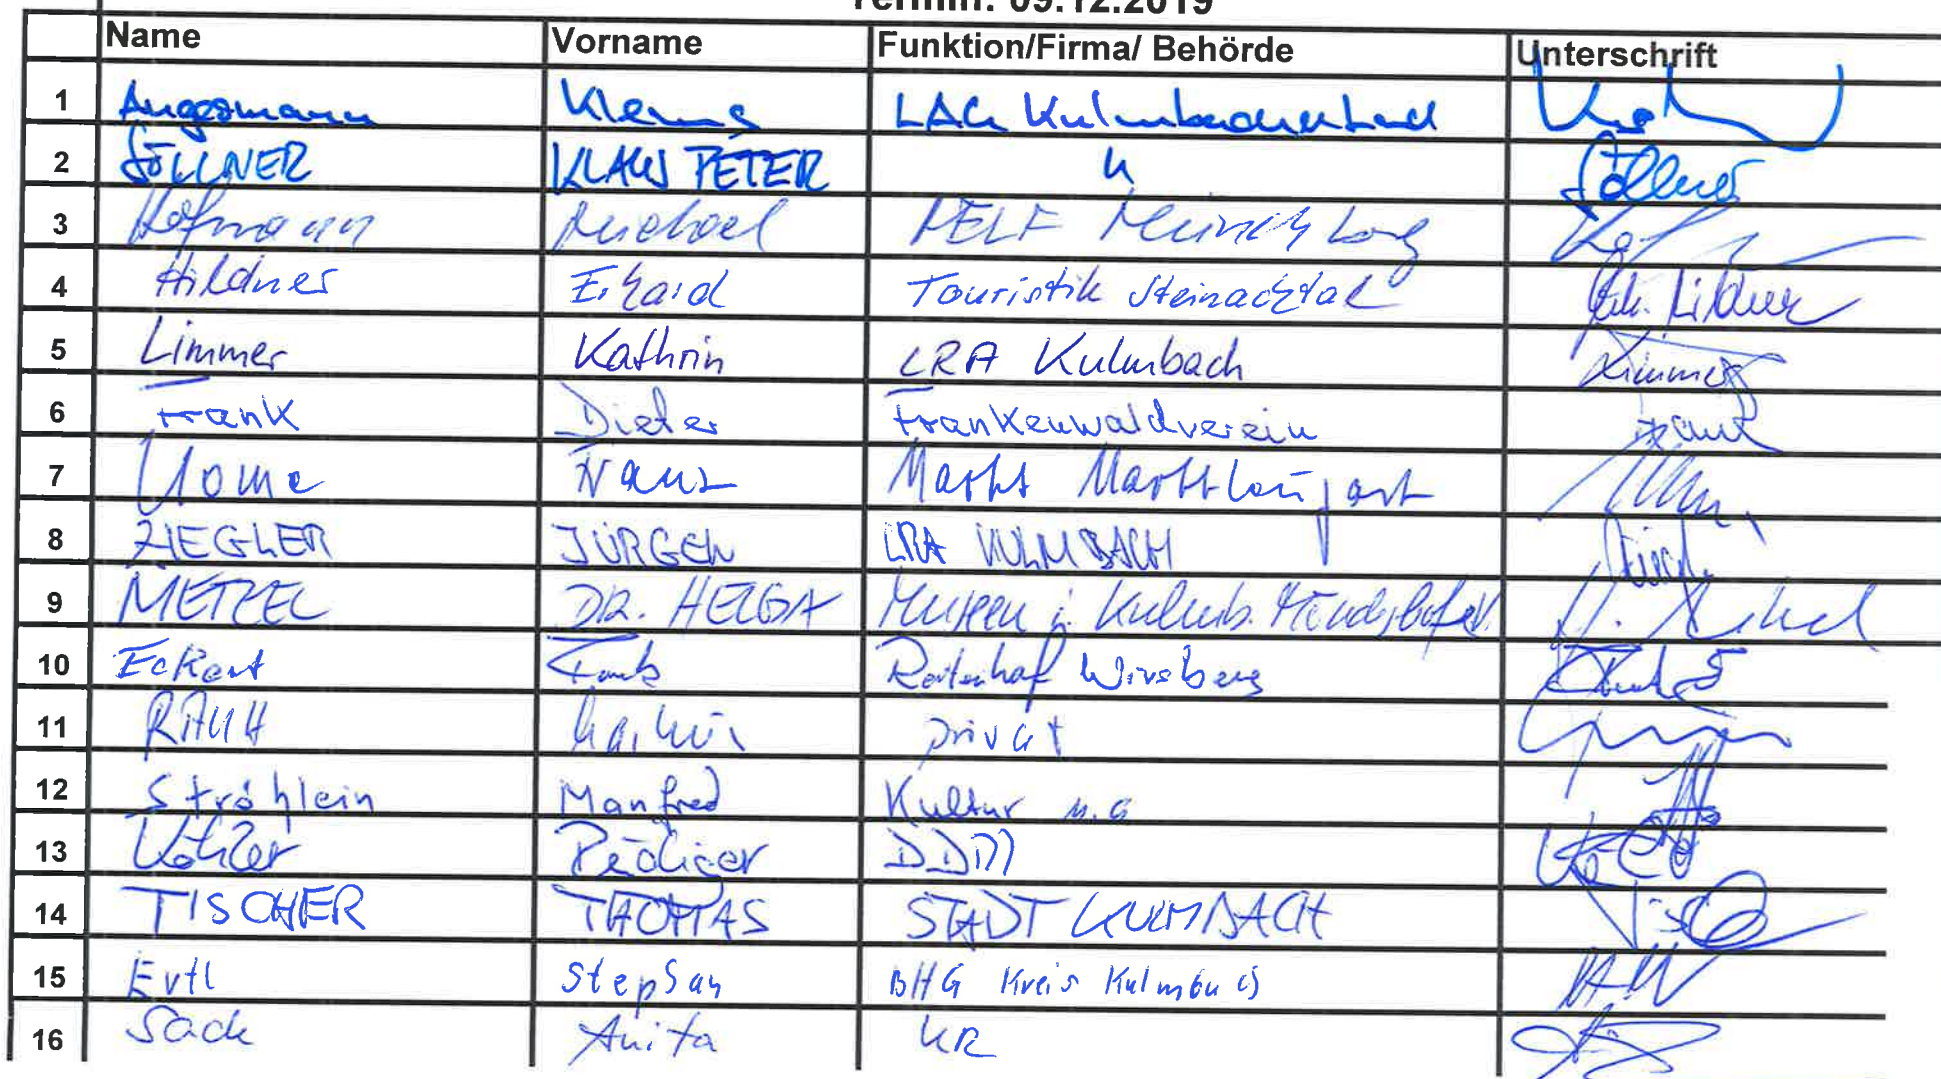 Termin: 09.12.2019
Name Vorname Funktion/Firma/ Behörde Unterschrift
1 Angermann Klemens LAG Kulmbacher Land
2 SÖLLNER KLAUS PETER " Söllner
3 Hofmann Michael AELF Münchberg
4 Hildner Erhard Touristik Steinachtal Erh. Hildner
5 Limmer Kathrin LRA Kulmbach Limmer
6 Frank Dieter Frankenwaldverein Frank
7 Uome Franz Markt Marktleugast
8 ZIEGLER JÜRGEN LRA KULMBACH
9 METZEL DR. HELGA Museen i. Kulmb. Mönchshof e.V. H. Metzel
10 Eckert Frank Reiterhof Wirsberg
11 RAUH privat
12 Ströhlein Manfred Kultur
13 Köhler Rüdiger
14 TISCHER THOMAS STADT KULMBACH
15 Ertl Stephan BHG Kreis Kulmbach
16 Sack Anita KR